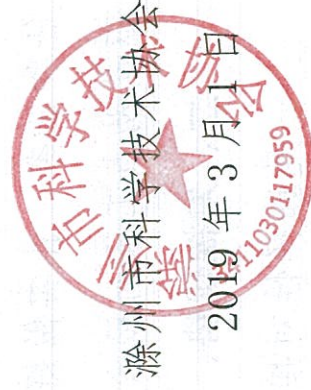 滁州市科学技术协会
2019年3月1日
滁州市科学技术协会
3411030117959